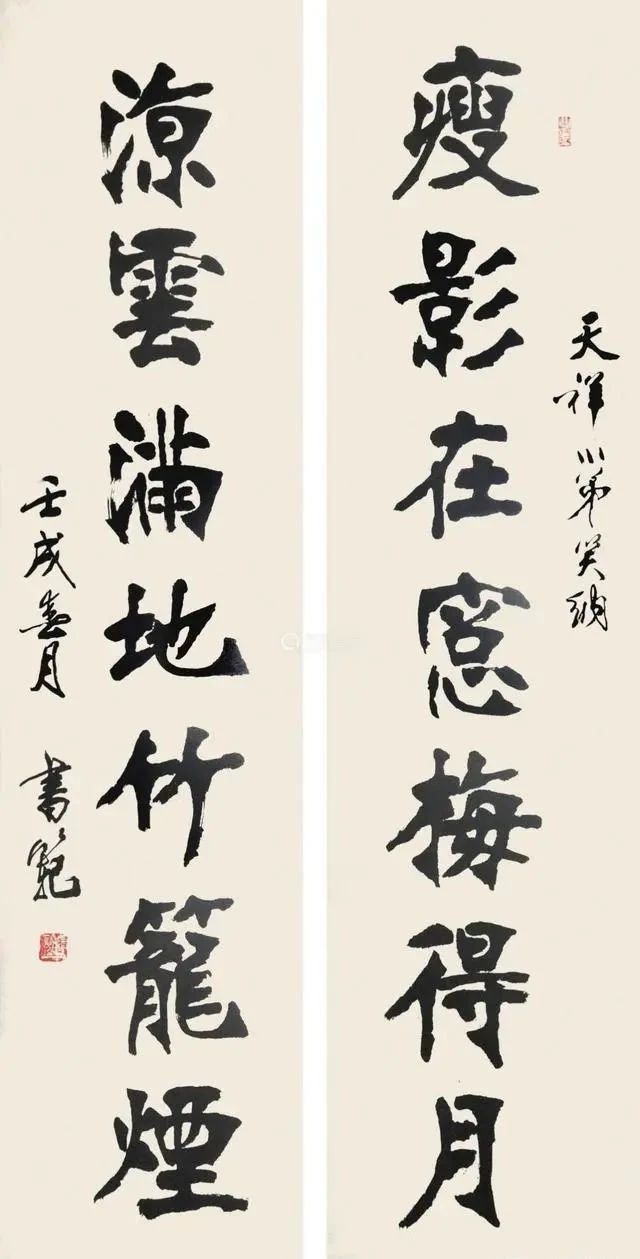 天祥小弟笑納
瘦影在窓梅得月
涼雲滿地竹籠煙
壬戌春月 書々範